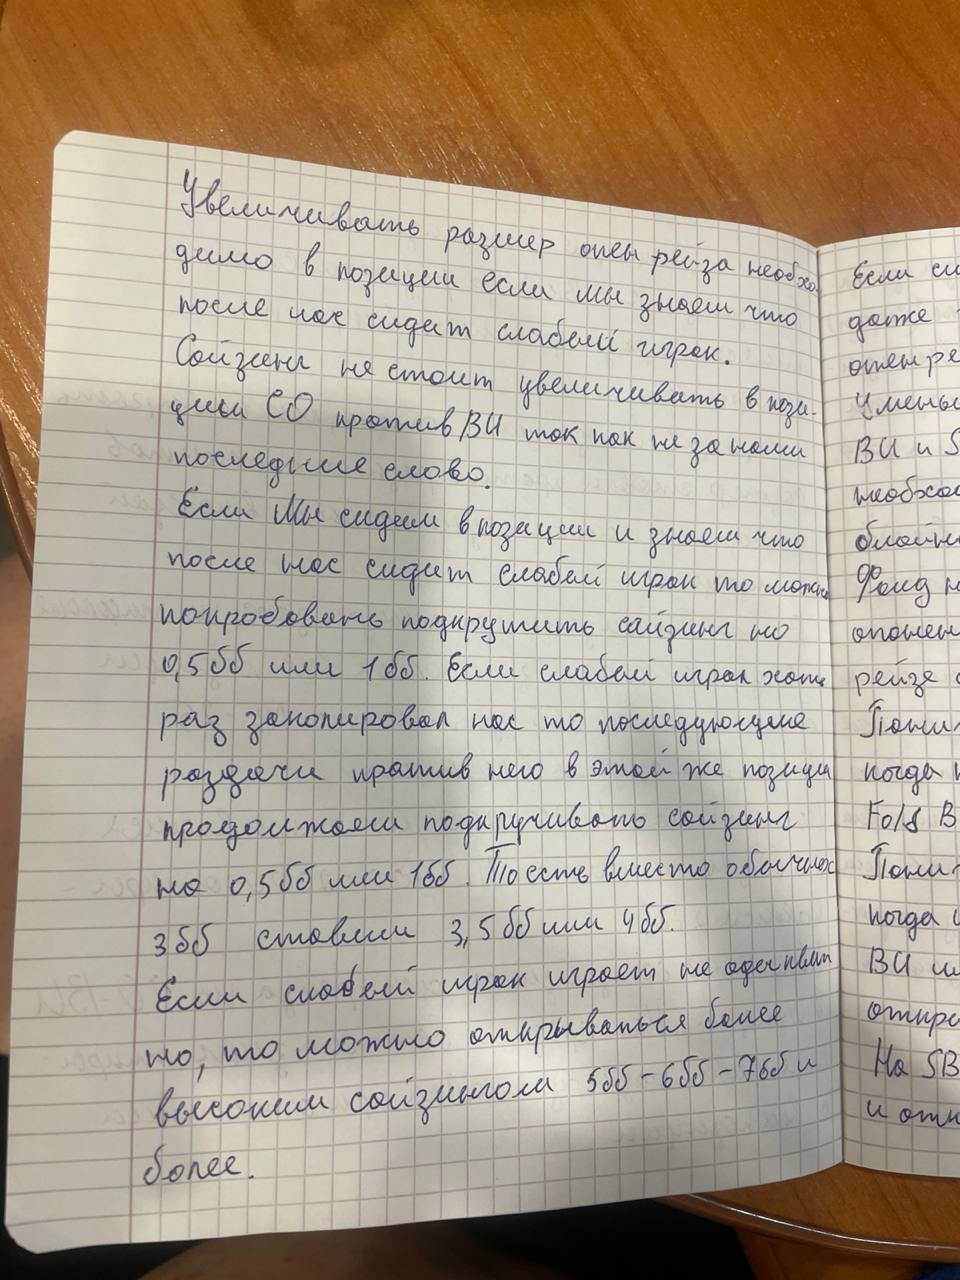 Увеличивать размер опен рейза необхо
димо в позиции если мы знаем что
после нас сидит слабый игрок.
Сайзинг не стоит увеличивать в пози-
ции СО против BU так как не за нами
последнее слово.
Если мы сидим в позиции и знаем что
после нас сидит слабый игрок то можно
попробовать подкрутить сайзинг на
0,5бб или 1бб. Если слабый игрок хоть
раз заколировал нас то последующие
раздачи против него в этой же позиции
продолжаем подкручивать сайзинг
на 0,5бб или 1бб. То есть вместо обычных
3бб ставим 3,5бб или 4бб.
Если слабый игрок играет не адекват
но, то можно открываться более
высоким сайзингом 5бб-6бб-7бб и
более.
Если
даже
опен ре
Умень
BU и S
необхо
блайн
Фолд н
опонен
рейзе
Пони
когда
Fold B
Пони
когда
BU и
откр
На SB
и отк